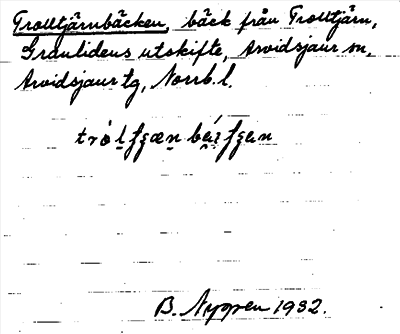 Trolltjärnbäcken, bäck från Trolltjärn,
Granlidens utskifte, Arvidsjaur sn,
Arvidsjaur tg, Norrb. l.
B. Nyppen 1932.